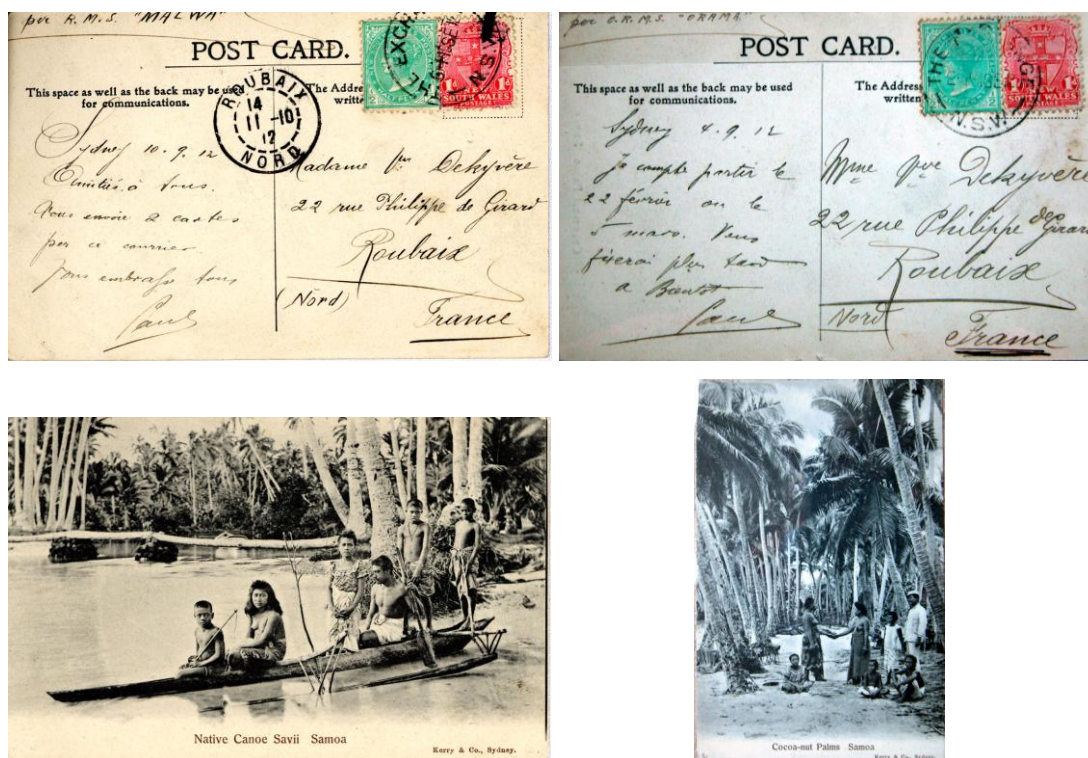 per R.M.S. "MALWA"
POST CARD.
This space as well as the back may be used
for communications.
The Addre
writte
ROUBAIX
14
11 -10
12
NORD
EXCHA
N.S.W.
SOUTH WALES
POSTAGE
Sydney 10.9.12
Amitiés à tous.
Vous envoie 2 cartes
par ce courrier
Vous embrasse tous
Paul
Madame Vve Dekyvère
22 rue Philippe de Girard
Roubaix
(Nord)
France
per O.R.M.S. "ORAMA"
POST CARD.
This space as well as the back may be used
for communications.
The Address
written
THE
N.S.W.
Sydney 4.9.12
Je compte partir le
22 février ou le
5 mars. Vous
fixerai plus tard
Paul
Mme Vve Dekyvère
22 rue Philippe de Girard
Roubaix
Nord
France
Native Canoe Savii Samoa
Kerry & Co., Sydney.
Cocoa-nut Palms Samoa
Kerry & Co., Sydney.